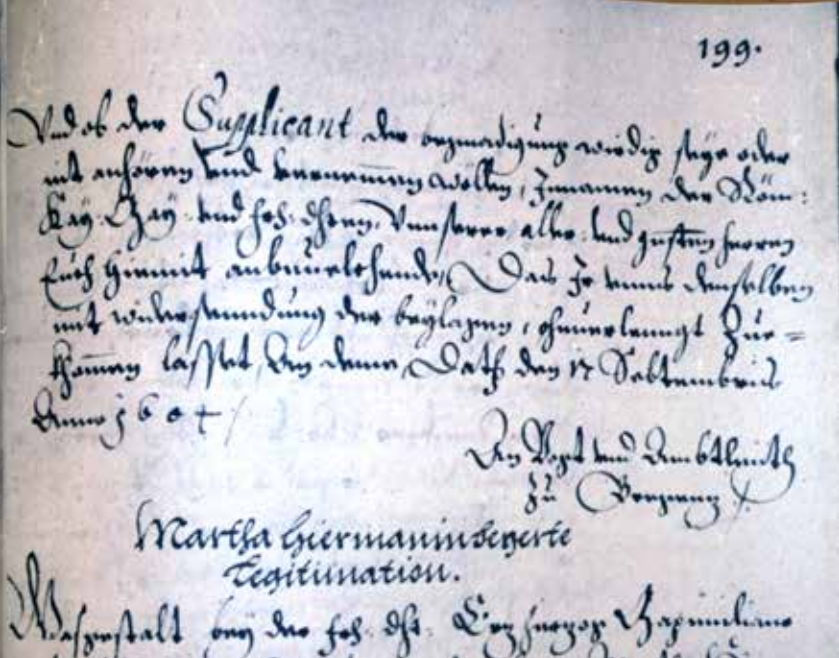 199.
Vnd ob der Supplicant der begnadigung wirdig seye oder
nit anhören vnd vernemmen wöllen, Innamen der Röm:
Kay: May: vnd frh: dhten: Vnnserer aller: vnd gnsten herren
Euch hiemit anbeuelchende, Das Ir vnns denselben
mit widersenndung der beylagen, ohnuerlenngt Zue=
khommen lasset, An deme Dath den 17 Septembris
Anno 1604 /
An Vogt vnd Ambtleuth
Zu Bregenz /.
Martha Hiermanin begerte
Legitimation.
Wasgestalt bey der frh: dht: Erzherzog Maximiliano